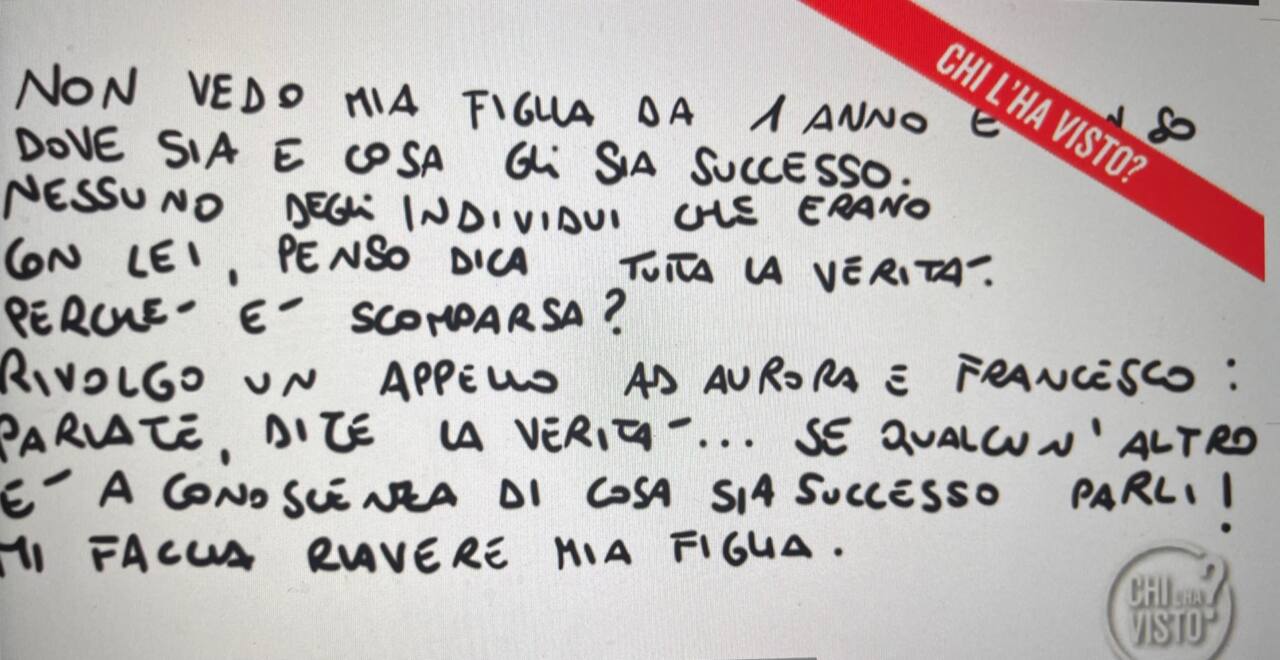 NON VEDO MIA FIGLIA DA 1 ANNO E SO
DOVE SIA E COSA GLI SIA SUCCESSO.
NESSUNO DEGLI INDIVIDUI CHE ERANO
CON LEI, PENSO DICA TUTTA LA VERITA'.
PERCHE' E' SCOMPARSA?
RIVOLGO UN APPELLO AD AURORA E FRANCESCO:
PARLATE, DITE LA VERITA'... SE QUALCUN'ALTRO
E' A CONOSCENZA DI COSA SIA SUCCESSO PARLI!
MI FACCIA RIAVERE MIA FIGLIA.
CHI L'HA VISTO?
CHI L'HA VISTO?